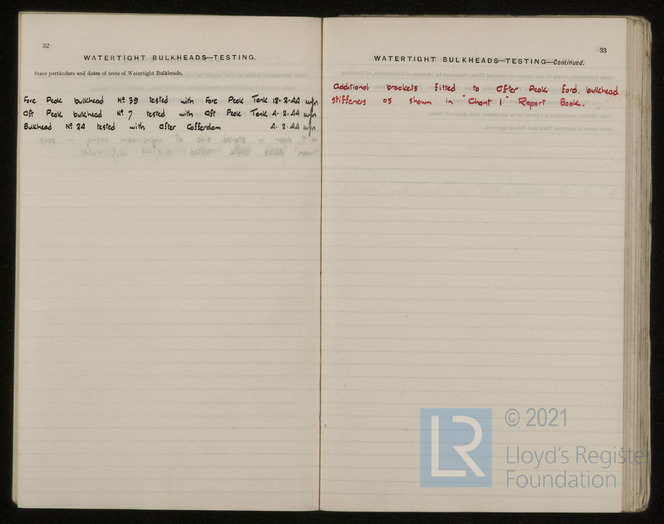 32
WATERTIGHT BULKHEADS—TESTING.
State particulars and dates of tests of Watertight Bulkheads.
Fore Peak bulkhead Nº 39 tested with Fore Peak Tank 18-2-44
Aft Peak bulkhead Nº 7 tested with Aft Peak Tank 4-2-44
Bulkhead Nº 34 tested with after Cofferdam 4-2-44
33
WATERTIGHT BULKHEADS—TESTING—Continued.
Additional brackets fitted to after Peak ford. bulkhead
stiffeners as shown in "Chant 1" Report Book.
© 2021
LR
Lloyd's Register
Foundation